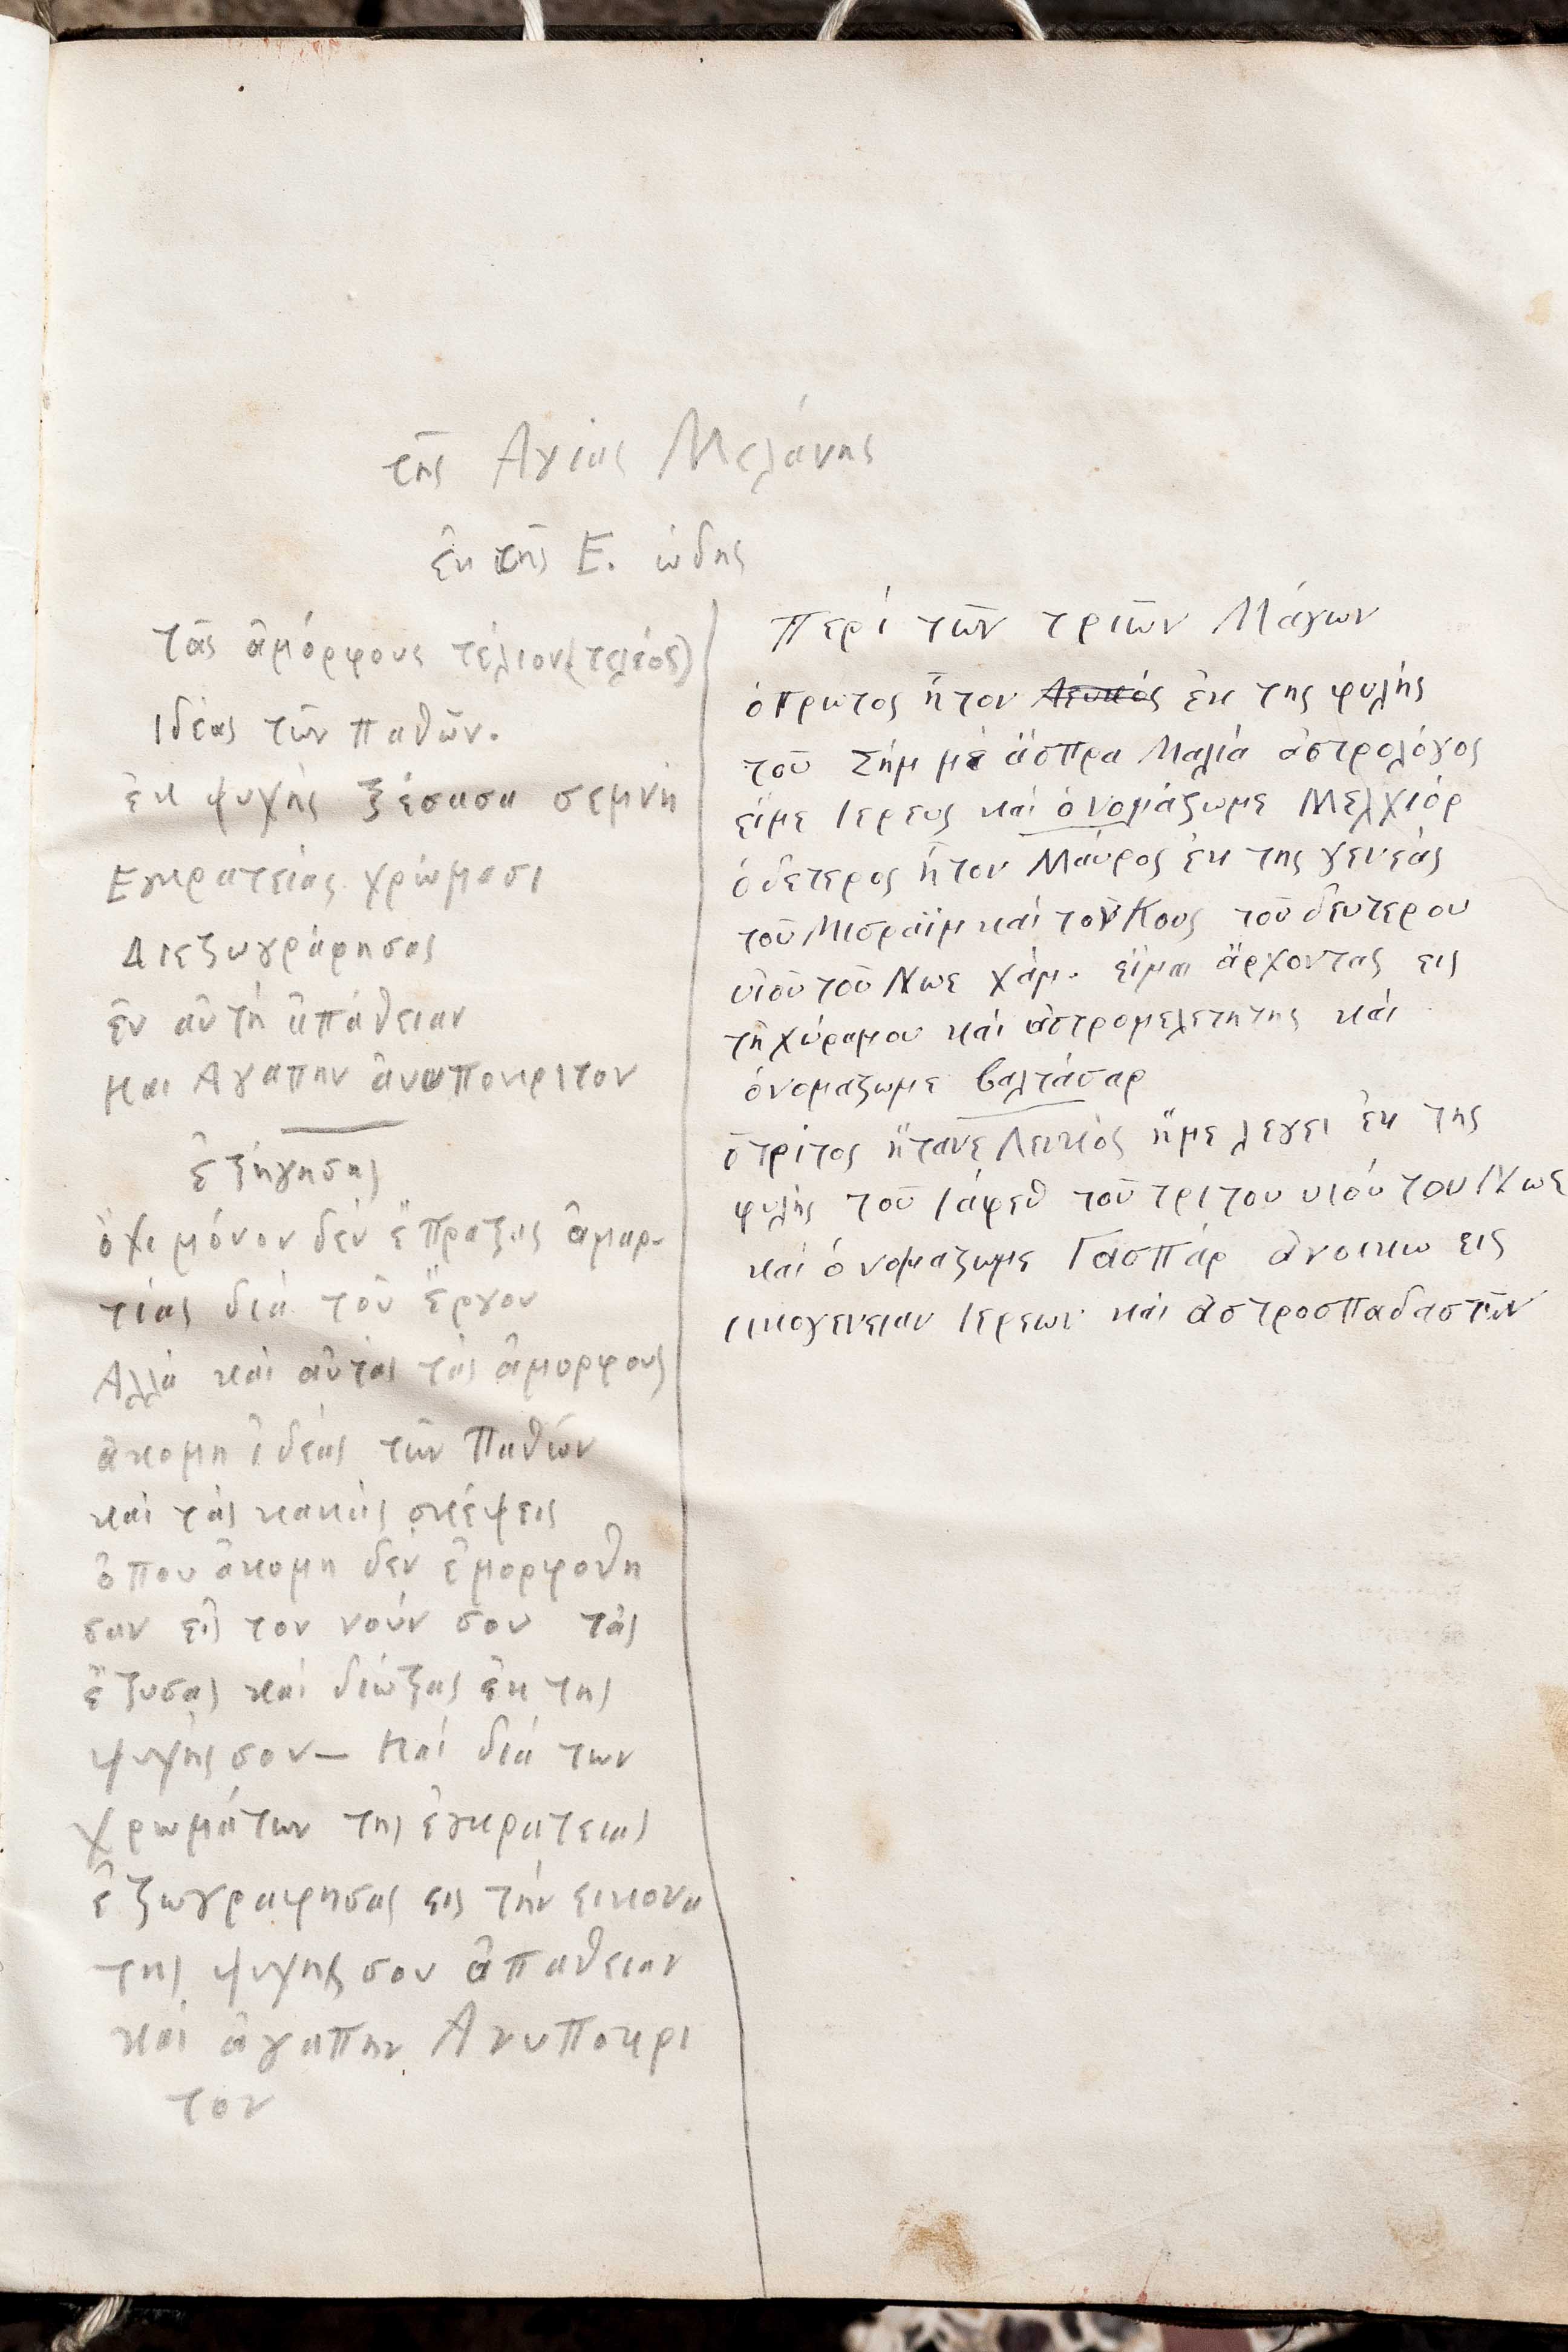 τῆς Αγίας Μελάνης
ἐκ τῆς Ε. ὠδης
Τὰς ἀμόρφους τέλιον (τελέος)
Ιδέας τῶν παθῶν.
ἐκ ψυχῆς ξέσασα σεμνὴ
Εγκρατείας χρώμασι
Διεζωγράφησας
ἐν αὐτῆ ἀπάθειαν
και Αγαπην ἀνυποκριτον
ἐξήγησις
ὄχι μόνον δεν ἔπραξας ἁμαρ-
τίας διὰ τοῦ ἔργου
Αλλὰ καὶ αὐτὰς τὰς ἀμορφους
ἀκομη ἰδέας τῶν Παθῶν
καὶ τὰς κακὰς σκέψεις
ὁπου ἀκομη δὲν ἐμορφοθη
σαν εἰς τον νοὺν σου τὰς
ἔξυσας καὶ διώξας ἐκ της
ψυχῆς σου — Καὶ διὰ των
χρωμάτων της ἐγκρατειας
ἐζωγραφησας εις τὴν εικονα
της ψυχης σου ἀπαθειαν
καὶ ἀγαπην Ανυποκρι
τον
Περὶ τῶν τριῶν Μάγων
ὁ πρωτος ἦτον Λευκός ἐκ της φυλῆς
τοῦ Σήμ μὲ ἄσπρα Μαλιά ἀστρολόγος
εἶμε Ιερευς καὶ ὀνομάζωμε Μελχιόρ
ὁ δετερος ἦτον Μαύρος ἐκ της γενεάς
τοῦ Μισραϊμ καὶ τοῦ Κους τοῦ δευτερου
υἱοῦ τοῦ Νωε Χάμ. εἶμαι ἄρχοντας εις
τὴ χώραμου καὶ ἀστρομελετητης καὶ
ὀνομαζωμε Βαλτάσαρ
ὁ τρίτος ἤτανε Λευκὸς ἤμε λεγει ἐκ της
φυλῆς τοῦ Ιάφεθ τοῦ τριτου υιού του Νωε
καὶ ὀνομαζωμε Γασπάρ ἀνοικω εις
οικογενειαν Ιερεων καὶ ἀστροσπαδαστῶν